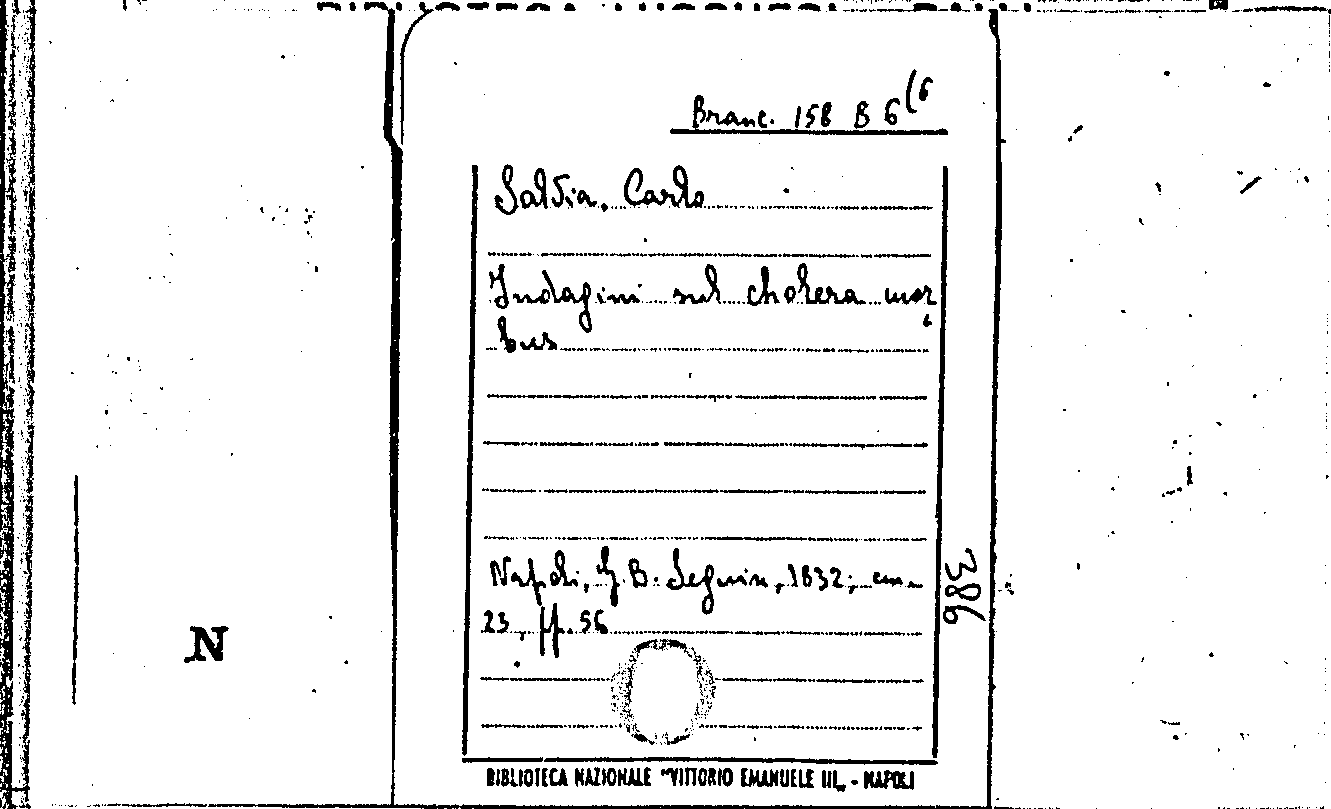 Branc. 158 B 6 (6
Salvia, Carlo
Indagini sul cholera mor
bus
Napoli, G. B. Seguin, 1832; cm.
23, pp. 56
386
N
BIBLIOTECA NAZIONALE "VITTORIO EMANUELE III„ - NAPOLI